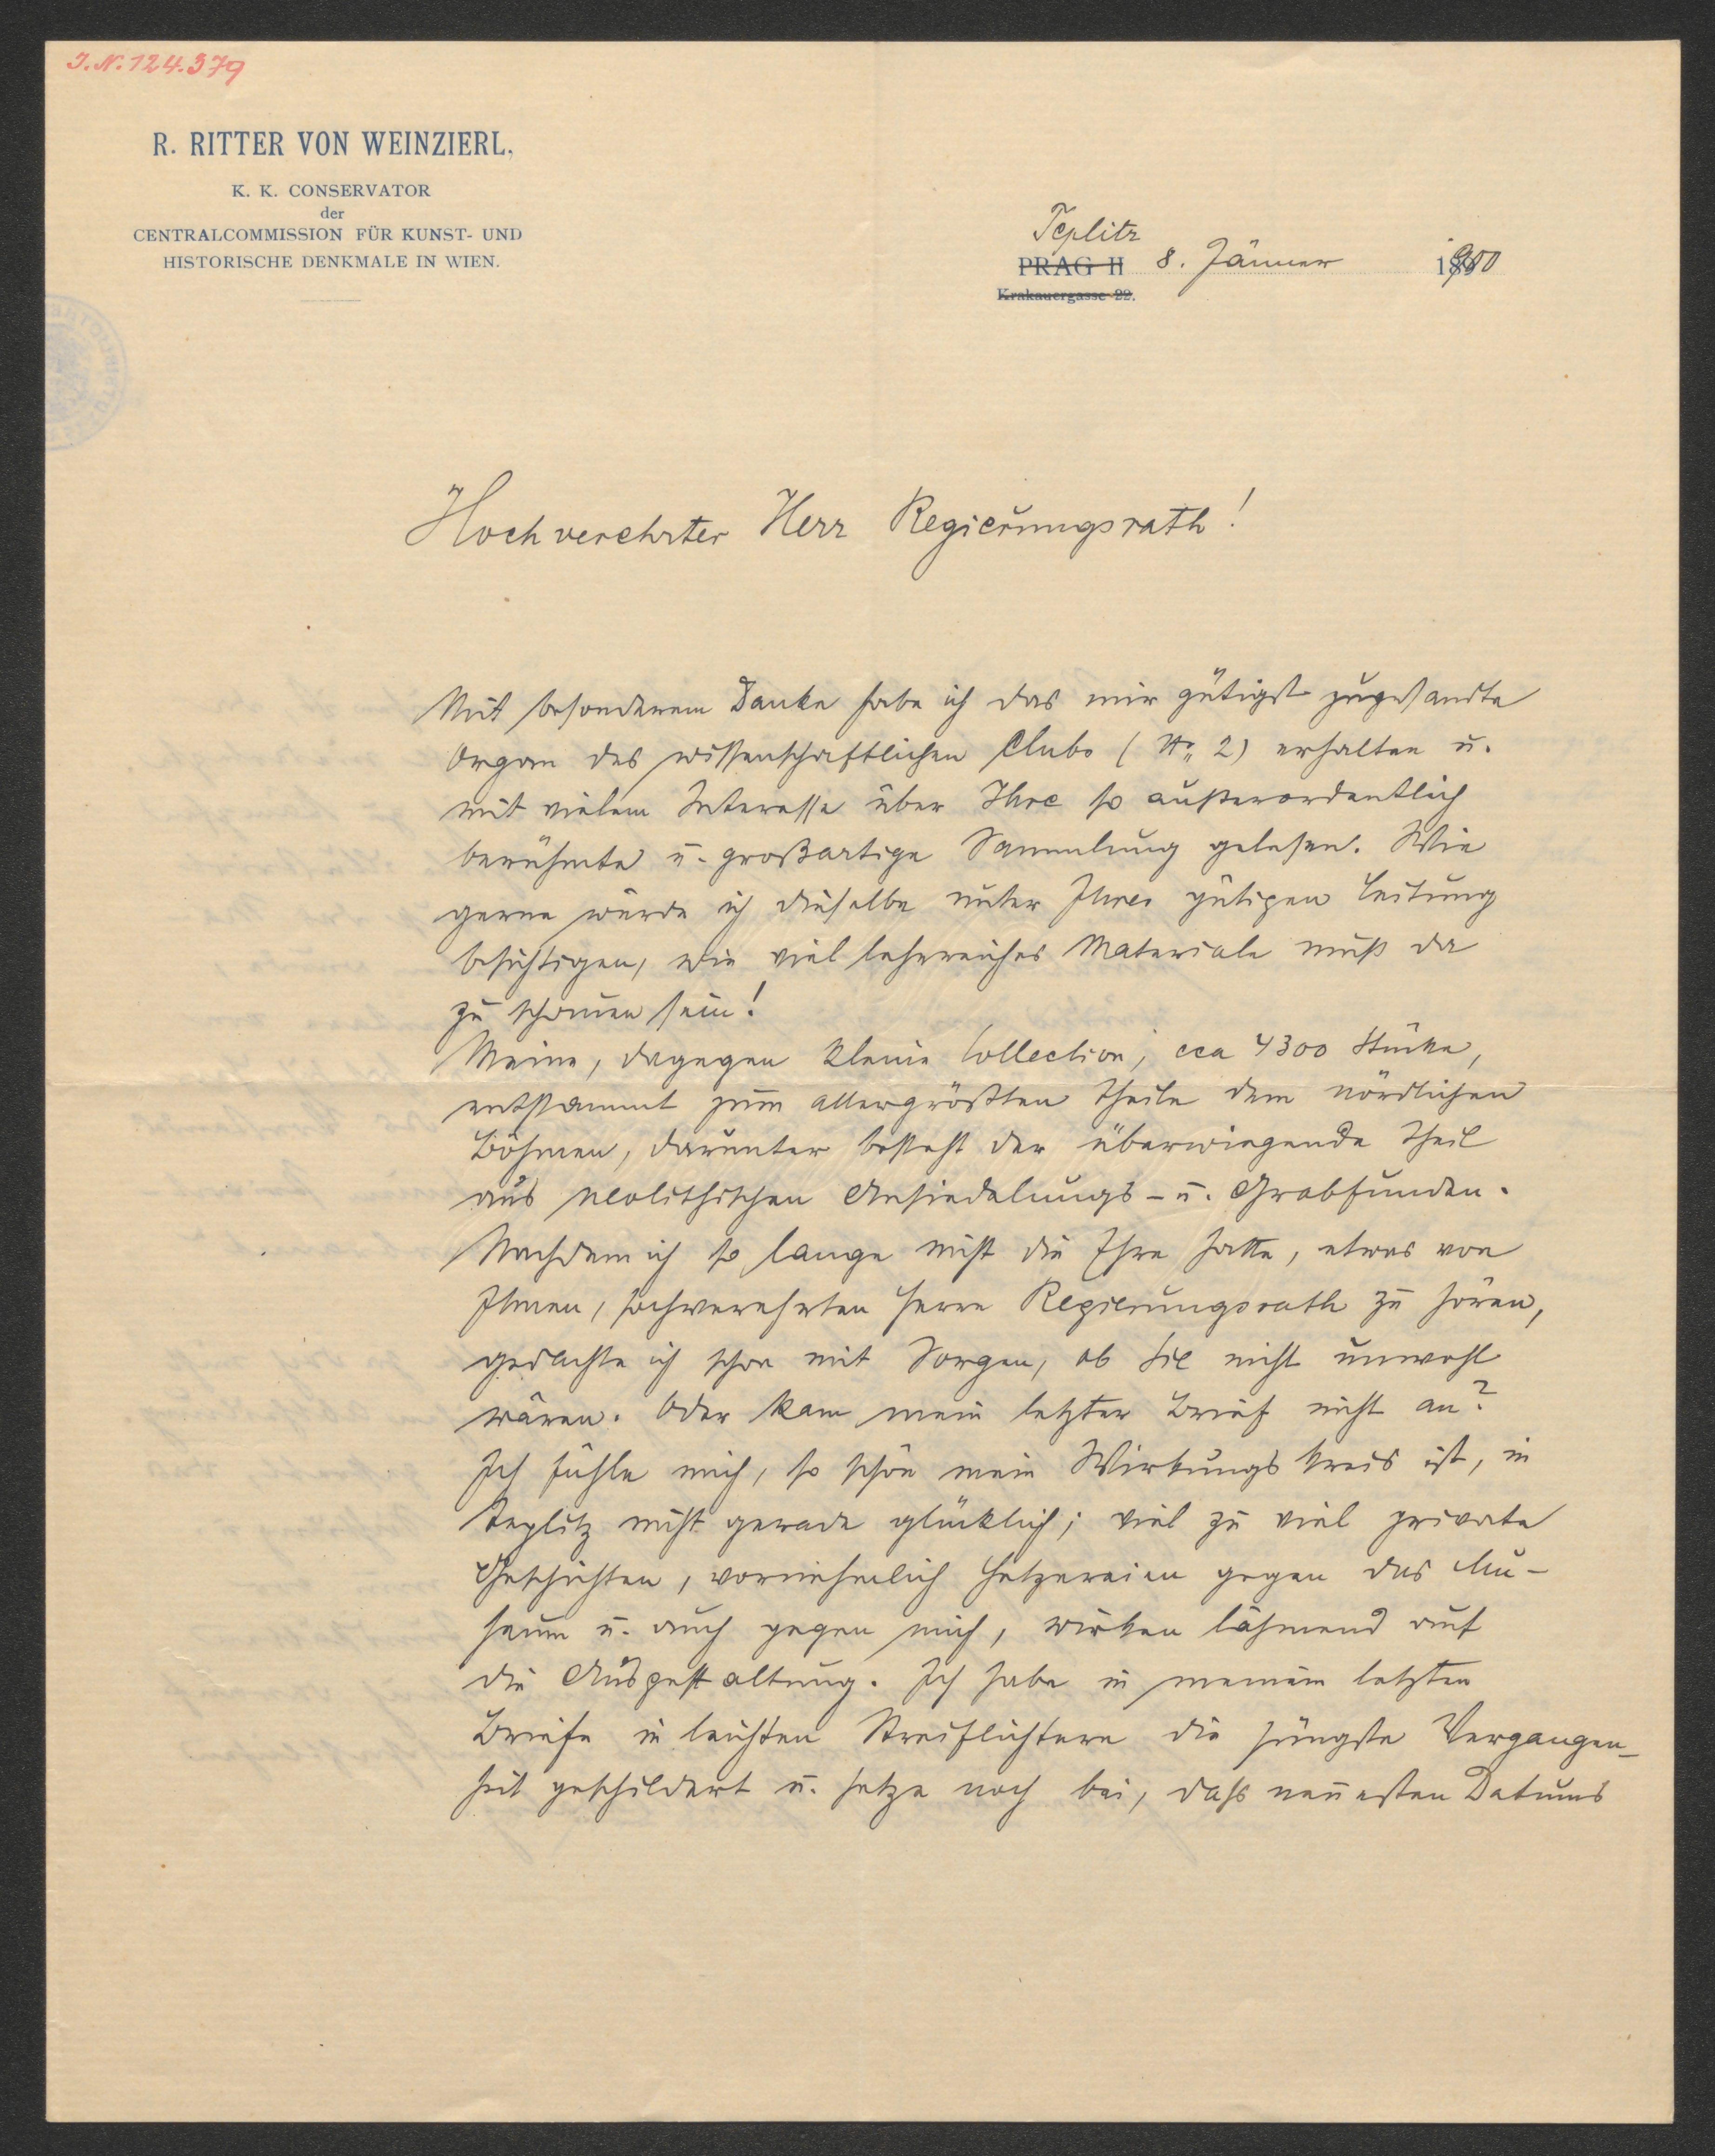 I.N. 124.379
R. RITTER VON WEINZIERL,
K. K. CONSERVATOR
der
CENTRALCOMMISSION FÜR KUNST- UND
HISTORISCHE DENKMALE IN WIEN.
Teplitz
PRAG II 8. Jänner 1900
Krakauergasse 22.
Hochverehrter Herr Regierungsrath!
Mit besonderem Danke habe ich das mir gütigst zugesandte
Organ des wissenschaftlichen Clubs (No 2) erhalten u.
mit vielem Interesse über Ihre so außerordentlich
berühmte u. großartige Sammlung gelesen. Wie
gerne würde ich dieselbe unter Ihrer gütigen Leitung
besichtigen, wie viel lehrreiches Materiale muß da
zu schauen sein!
Meine, dagegen kleine Collection, cca 4300 Stücke,
entstammt zum allergrößten Theile dem nördlichen
Böhmen, darunter besteht der überwiegende Theil
aus neolithischen Ansiedelungs- u. Grabfunden.
Nachdem ich so lange nicht die Ehre hatte, etwas von
Ihnen, hochverehrten Herrn Regierungsrath zu hören,
gedachte ich schon mit Sorgen, ob Sie nicht unwohl
wären. Oder kam mein letzter Brief nicht an?
Ich fühle mich, so schön mein Wirkungskreis ist, in
Teplitz nicht gerade glücklich; viel zu viel private
Geschichten, vornehmlich Hetzereien gegen das Mu-
seum u. auch gegen mich, wirken lähmend auf
die Ausgestaltung. Ich habe in meinem letzten
Briefe in leichten Streiflichtern die jüngste Vergangen-
heit geschildert u. setze noch bei, dass neuesten Datums